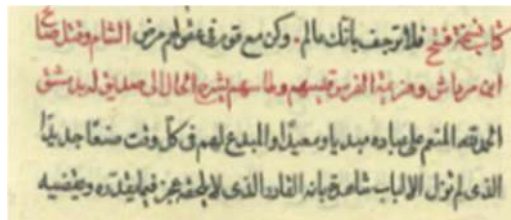 كتاب نسخة فتح فلا ترجف بانك عالم وكن مع قوم في عقولهم مرض الشام وقتل صاحب
ابن مرداش وهزيمة الفرس بشرح الحال الى صديق له بدمشق
الحمد لله المنعم على عباده مبديا ومعيدا والمبدع لهم في كل وقت صنعا جديدا
الذى لم تزل الالباب شاهدة بانه القادر الذى لا يلحقه عجز فيما يقدره ويقضيه